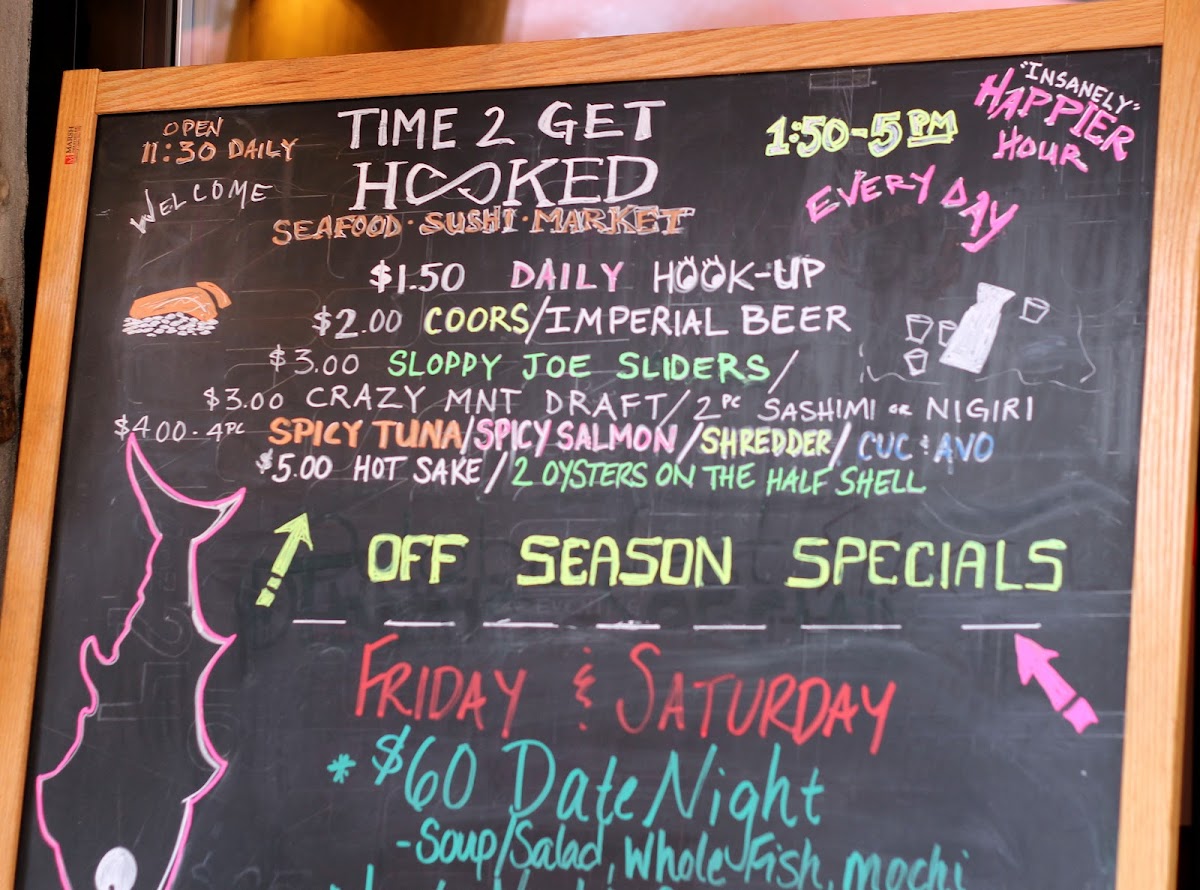 OPEN
11:30 DAILY
WELCOME
TIME 2 GET
HOOKED
SEAFOOD · SUSHI · MARKET
1:50-5 PM
"INSANELY"
HAPPIER
HOUR
EVERY DAY
$1.50 DAILY HOOK-UP
$2.00 COORS/IMPERIAL BEER
$3.00 SLOPPY JOE SLIDERS/
$3.00 CRAZY MNT DRAFT/2PC SASHIMI OR NIGIRI
$4.00-4PC SPICY TUNA/SPICY SALMON/SHREDDER/CUC & AVO
$5.00 HOT SAKE/2 OYSTERS ON THE HALF SHELL
OFF SEASON SPECIALS
FRIDAY & SATURDAY
* $60 Date Night
-Soup/Salad, Whole Fish, Mochi